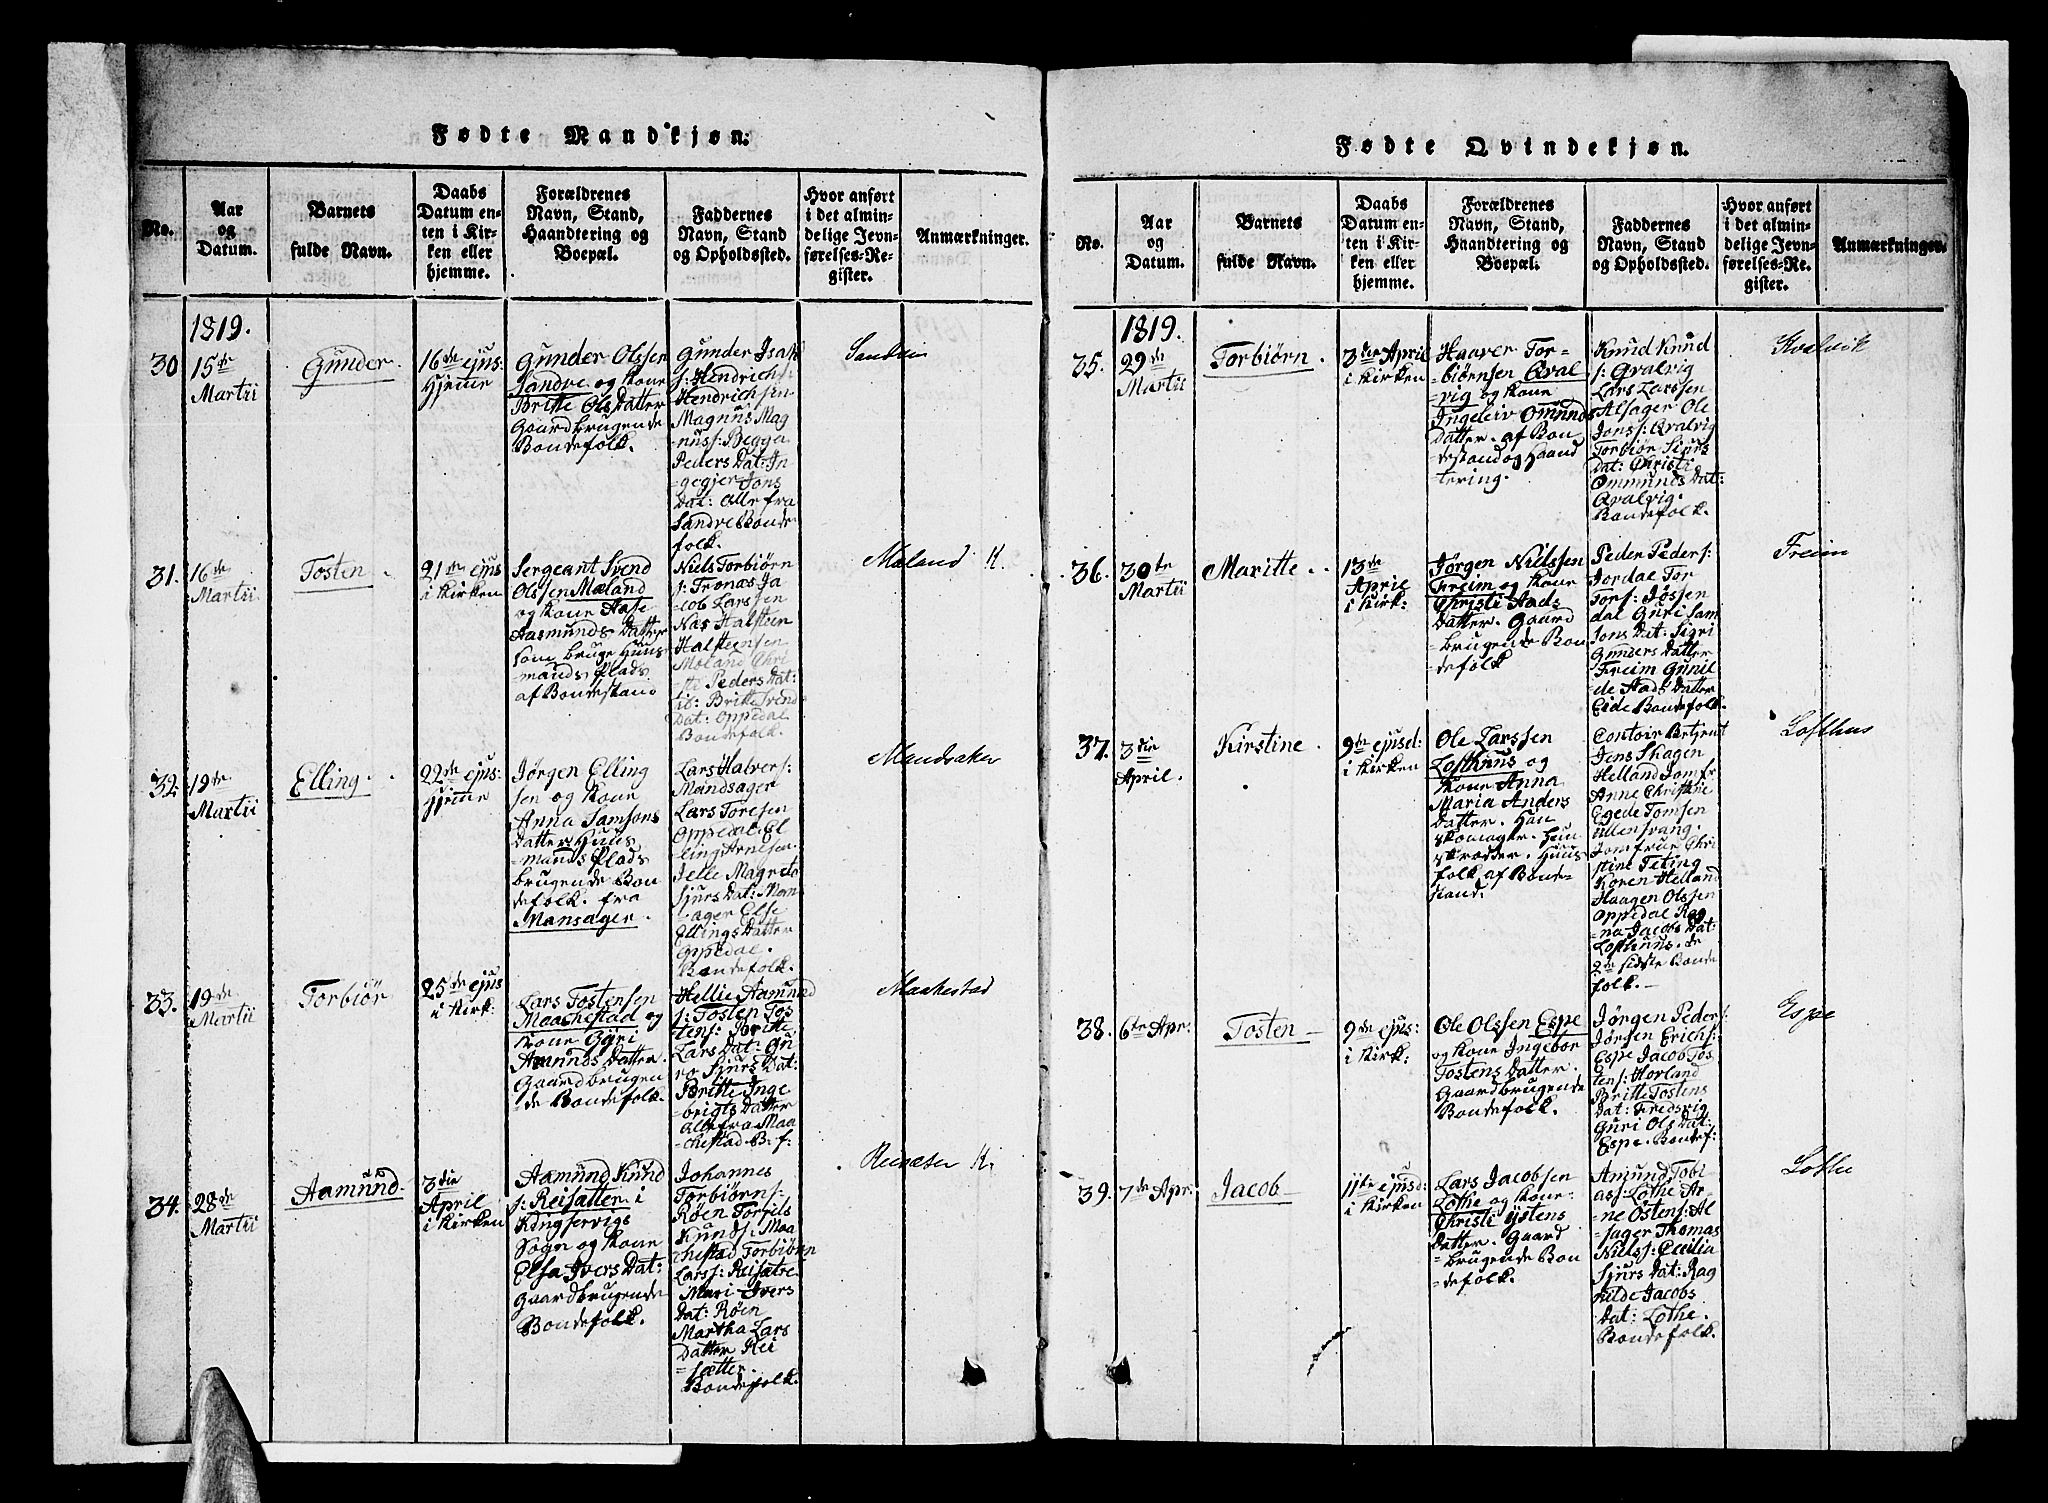 Fødte Mandkjøn.
No.
Aar
og
Datum.
Barnets
fulde Navn.
Daabs
Datum en-
ten i Kir-
ken eller
hjemme.
Forældrenes
Navn, Stand,
Haandtering og
Boepæl.
Faddernes
Navn, Stand
og Opholdssted.
Hvor anført
i det almin-
delige Jevn-
førelses-Re-
gister.
Anmærkninger.
1819.
30
15de
Martii
Gunder.
16de ejus:
Hjeme
Gunder Olssen
Sandve og Kone
Britte Ols Datter
Gaardbrugende
Bondefolk.
Gunder Isak
s: Hendrich
Hendrichsen
Magnus Mag
-nuss: Begga
Peders Dat: In
gegjer Jons
Dat: Alle fra
Sandve Bonde
folk.
Sandvin
31.
16de
Martii
Tosten.
21de ejus
i Kirken
Sergeant Svend
Olssen Mæland
og Kone Aase
Aasmunds Datter
som bruge Huus
-mands Plads
af Bondestand
Niels Torbiørn
s: Tronæs Ja
cob Larssen
Næs Halsteen
Halsteensen
Moland Chri
sti Peders Dat:
ib: Britte Svend
Dat: Oppedal
Bondefolk.
Mæland K.
32.
19de
Martii
Elling.
22de ejus:
Hjeme
Jørgen Elling
sen og Kone
Anna Samsons
Datter Huus
-mands Plads
brugende Bon
defolk. fra
Mansager.
Lars Halvers:
Mandsager
Lars Toresen
Oppedal El
ling Arnesen.
Jelle Magrete
Sjurs Dat: Man
-sager Else
Ellings Datter
Oppedal.
Bondefolk.
Mandsaker
33.
19de
Martii
Torbiør
25de ejus
i Kirk:
Lars Tostensen
Maachestad og
Kone Gyri
Amunds Datter.
Gaardbrugen
de Bondefolk.
Hellie Aamund
s: Tosten Tos
tens: Britte
Lars Dat: Gu
ro Sjurs Dat:
Britte Inge
brigts Datter
Alle fra Maa
chestad B: f:
Maakestad
34.
28de
Martii
Aamund
3die
April
i Kirken
Aamund Knud
s: Reisætter i
Kingservigs
Sogn og Kone
Elsa Ivers Dat:
Gaardbrugende
Bondefolk.
Johannes
Torbiørns:
Røen Torgils
Knuds: Maa
chestad Torbiørn
Larss: Reisætre
Mari Ivers
Dat: Røen
Martha Lars
Datter Rei
-sætter
Bondefolk.
Reisæter K.
Fødte Qvindekjøn.
No.
Aar
og
Datum.
Barnets
fulde Navn.
Daabs
Datum en-
ten i Kir-
ken eller
hjemme.
Forældrenes
Navn, Stand,
Haandtering og
Boepæl.
Faddernes
Navn, Stand
og Opholdssted.
Hvor anført
i det almin-
delige Jevn-
førelses-Re-
gister.
Anmærkninger.
1819.
35.
29de
Martii
Torbiørn.
3die April
i Kirken
Haaver Tor-
-biørnsen Qval
-vig og Kone
Ingeleiv Omunds
Datter. af Bon
destand og Haand
tering.
Knud Knud
s: Qvalvig
Lars Larssen
Alsager Ole
Jons: Qvalvig
Torbiør Sjurs
Dat: Christi
Ommunds Dat:
Qvalvig.
Bondefolk.
Kvalvik
36.
30te
Martii
Maritte.
13de
April
i Kirk:
Jørgen Nielssen
Freim og Kone
Christi Aads
Datter. Gaard
brugende Bon
defolk
Peder Peders:
Jordal Tor
Tors: Jøssen
dal Guri Sam
sons Dat: Sigri
Gunders Datter
Freim Gunil
de Aads Datter
Eide Bondefolk.
Freim
37.
3die
April.
Kirstine.
9de ejusd:
i Kirken
Ole Larssen
Lofthuus og
Kone Anna
Maria Anders
Datter. Han
Skomager. Hun
Skrædder. Huus
folk af Bonde-
stand.
Contoir Betjent
Jens Skagen
Helland Jomfr
Anne Christine
Egede Tomsen
Ullensvang.
Jomfrue Chri
stine Teting
Koren Helland
Haagen Olssen
Oppedal Rag
-na Jacobs Dat:
Lofthuus. de
2de sidste Bonde
folk.
Lofthus
38.
6te Apr:
Tosten
9de ejus:
i Kirk:
Ole Olssen Espe
og Kone Ingebor
Tostens Datter.
Gaardbrugende
Bondefolk.
Jørgen Peder
Jørsen Erichs:
Espe Jacob Tos
tens: Hovland
Britte Tostens
Dat: Fredsvig
Guri Ols Dat:
Espe. Bondef:
Espe
39.
7de Apr:
Jacob
11te ejusd:
i Kirken
Lars Jacobsen
Lothe og Kone
Christi Ystens
Datter. Gaard
-brugende Bon
-defolk.
Amund Tobi-
as: Lothe Ar-
-ne Ostens: Al
-sager Thomas
Niels: Cecilia
Sjurs Dat: Rag
nilde Jacobs
Dat: Lothe.
Bondefolk.
Lothe